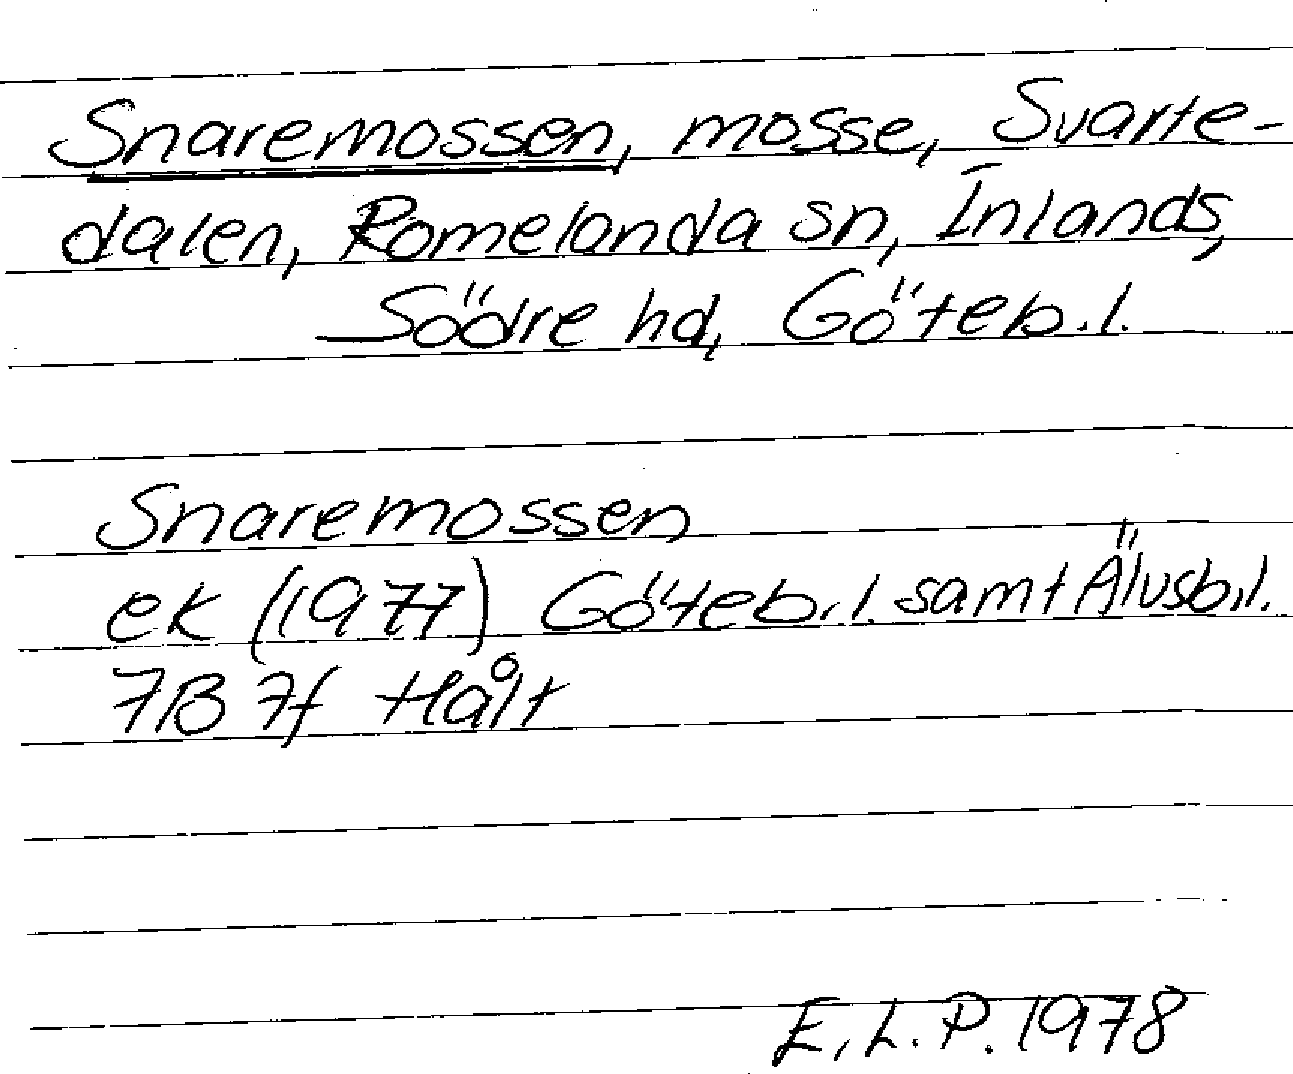 Snaremossen, mosse, Svarte-
dalen, Romelanda sn, Inlands,
Södre hd, Göteb.l.
Snaremossen
ek (1977) Göteb.l. samt Älvsb.l.
7B 7f Hålt
E.L.P. 1978